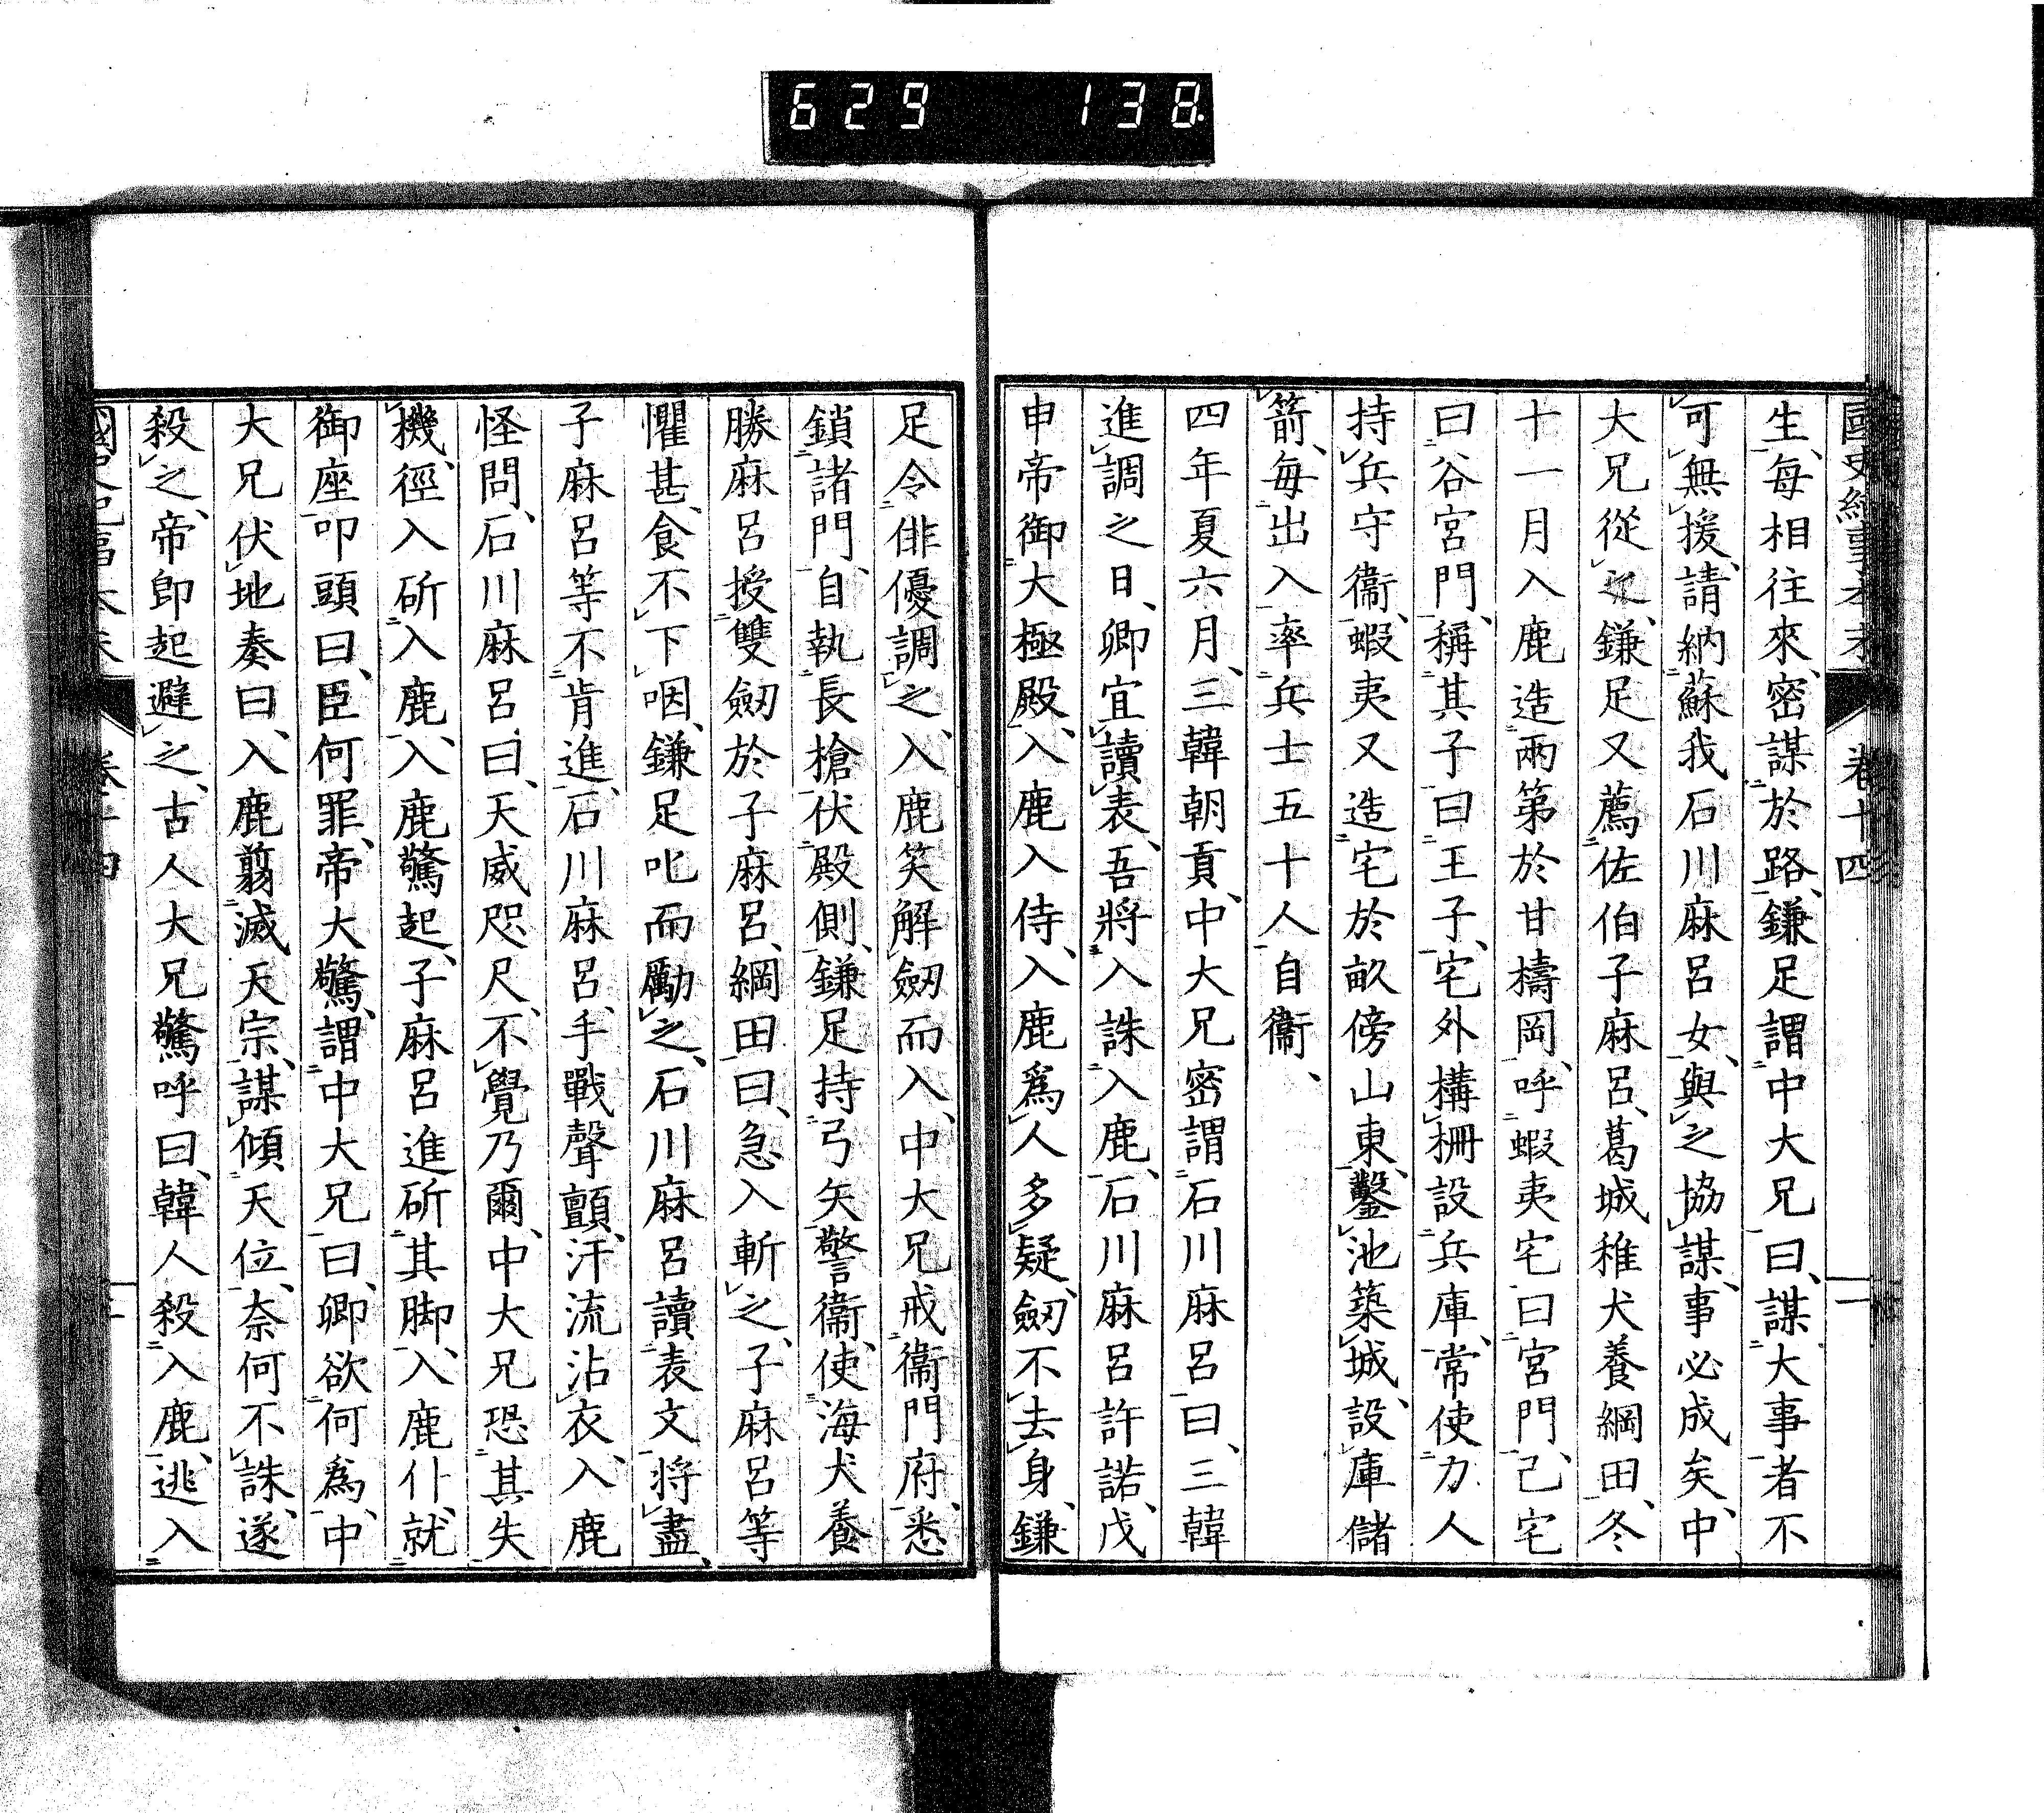 629 138
國史紀事本末 卷十四 二
生、每相往來、密謀於路、鎌足謂中大兄曰、謀大事者不
可無援、請納蘇我石川麻呂女、與之協謀、事必成矣、中
大兄從之、鎌足又薦佐伯子麻呂、葛城稚犬養綱田、冬
十一月入鹿造兩第於甘檮岡、呼蝦夷宅曰宮門、己宅
曰谷宮門、稱其子曰王子、宅外構柵設兵庫、常使力人
持兵守衞、蝦夷又造宅於畝傍山東、鑿池築城、設庫儲
箭、每出入率兵士五十人自衞、
四年夏六月、三韓朝貢、中大兄密謂石川麻呂曰、三韓
進調之日、卿宜讀表、吾將入誅入鹿、石川麻呂許諾、戊
申帝御大極殿、入鹿入侍、入鹿爲人多疑、劒不去身、鎌
足令俳優調之、入鹿笑解劒而入、中大兄戒衞門府、悉
鎖諸門、自執長槍伏殿側、鎌足持弓矢警衞、使海犬養
勝麻呂授雙劒於子麻呂、綱田曰、急入斬之、子麻呂等
懼甚、食不下咽、鎌足叱而勵之、石川麻呂讀表文將盡、
子麻呂等不肯進、石川麻呂、手戰聲顫、汗流沾衣、入鹿
怪問、石川麻呂曰、天威咫尺、不覺乃爾、中大兄恐其失
機、徑入斫入鹿、入鹿驚起、子麻呂進斫其脚、入鹿仆、就
御座叩頭曰、臣何罪、帝大驚、謂中大兄曰、卿欲何爲、中
大兄伏地奏曰、入鹿翦滅天宗、謀傾天位、奈何不誅、遂
殺之、帝卽起避之、古人大兄驚呼曰、韓人殺入鹿、逃入